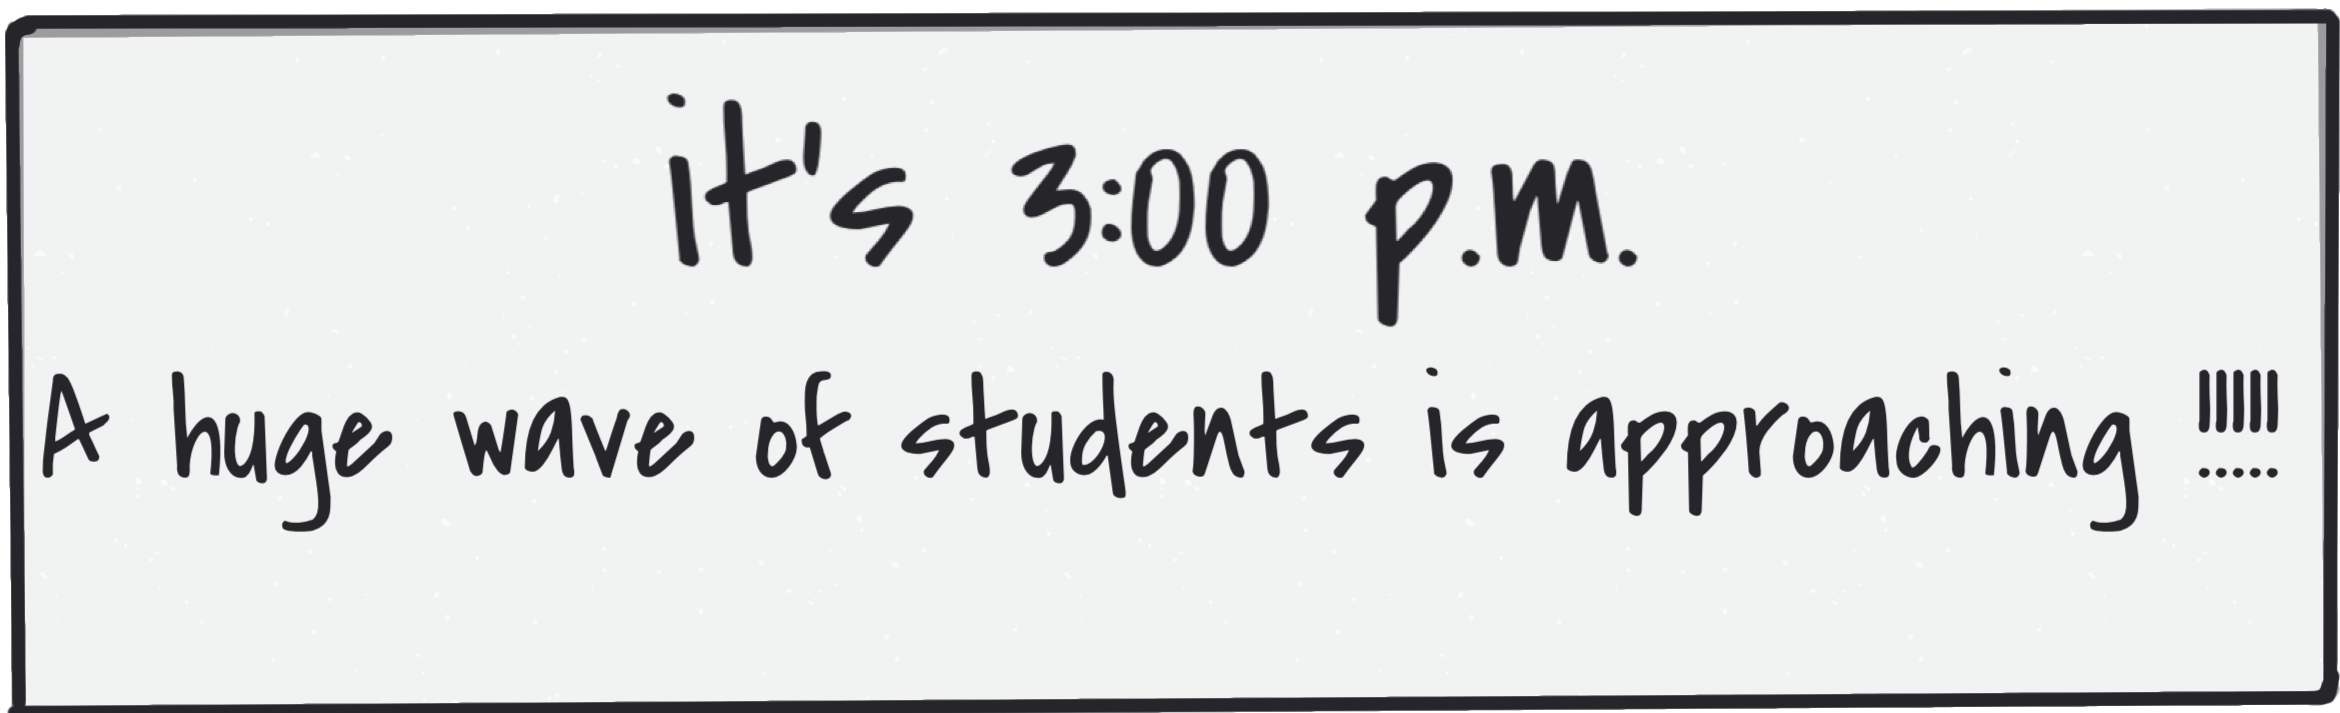 it's 3:00 p.m.
A huge wave of students is approaching !!!!!